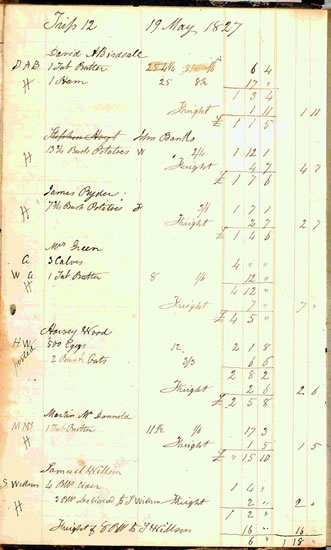 Trip 12 19 May 1827
David A Birdsall
D A B 1 Tub Butter 6 4
H 1 Ham 25 8½ 17 "
1 3 4
Freight 1 11 1 11
£ 1 1 5
Stephen Hoyt John Banks
H 13¾ Bush Potatoes W 2/4 1 12 1
Freight 4 7 4 7
£ 1 7 6
James Ryder
H 7¾ Bush Potatoes 1 7 1
Freight 2 7 2 7
£ 1 4 6
Mrs Green
G 3 Calves 4 " "
W G 1 Tub Butter 8 1/6 12 "
4 12 "
Freight 7 " 7 "
£ 4 5 "
Harvey Wood
H W 500 Eggs 12 2 1 8
posted 2 Oats 3/3 6 6
2 8 2
Freight 2 6 2 6
£ 2 5 8
Martin Mc Donnold
M M D 1 Tub Butter 17 3
H Freight 1 5 1 5
£ " 15 10
Samuel Willson
S Willson 4 Cider 1 4 "
H to J Willson Freight 2 " 2 "
1 2 "
Freight of 8 to J Willson 16 " 16
6 " 1 18 "